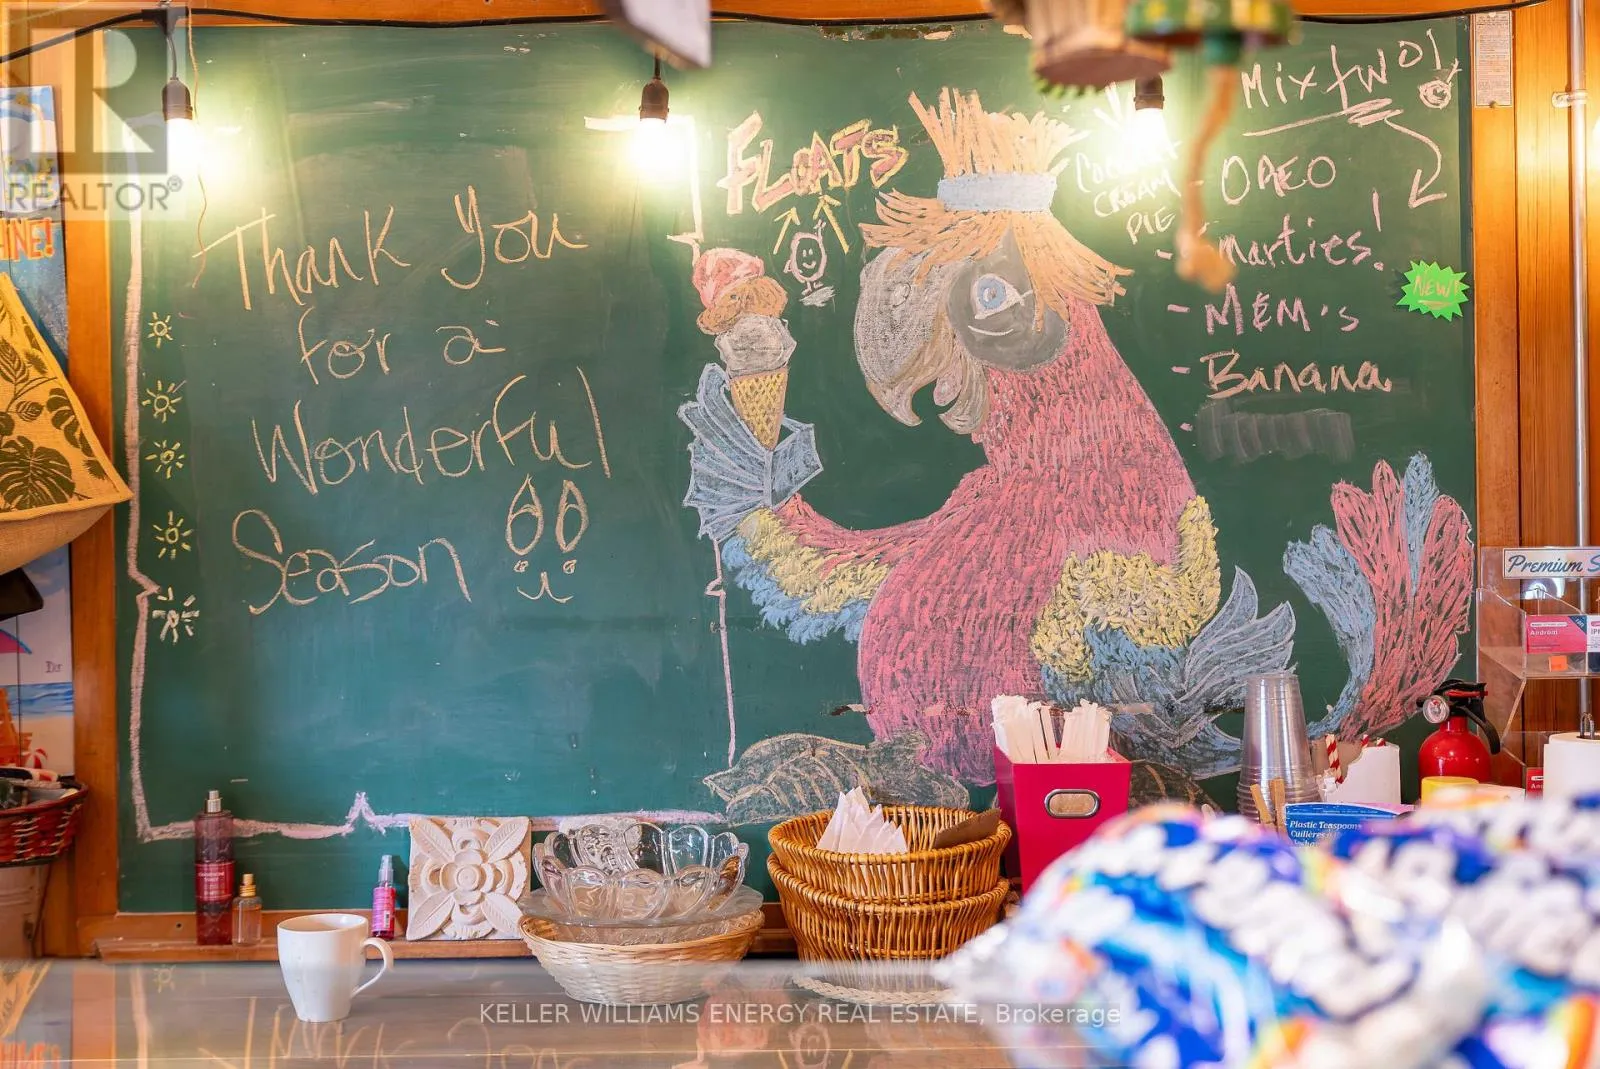 REALTOR®
HINE!
Thank You
for a
Wonderful
Season
FLOATS
CREAM
PIE
Mix two!
- OREO
- Smarties!
- M&M's
- Banana
NEW!
Premium S
Android
Plastic Teaspoons
KELLER WILLIAMS ENERGY REAL ESTATE, Brokerage